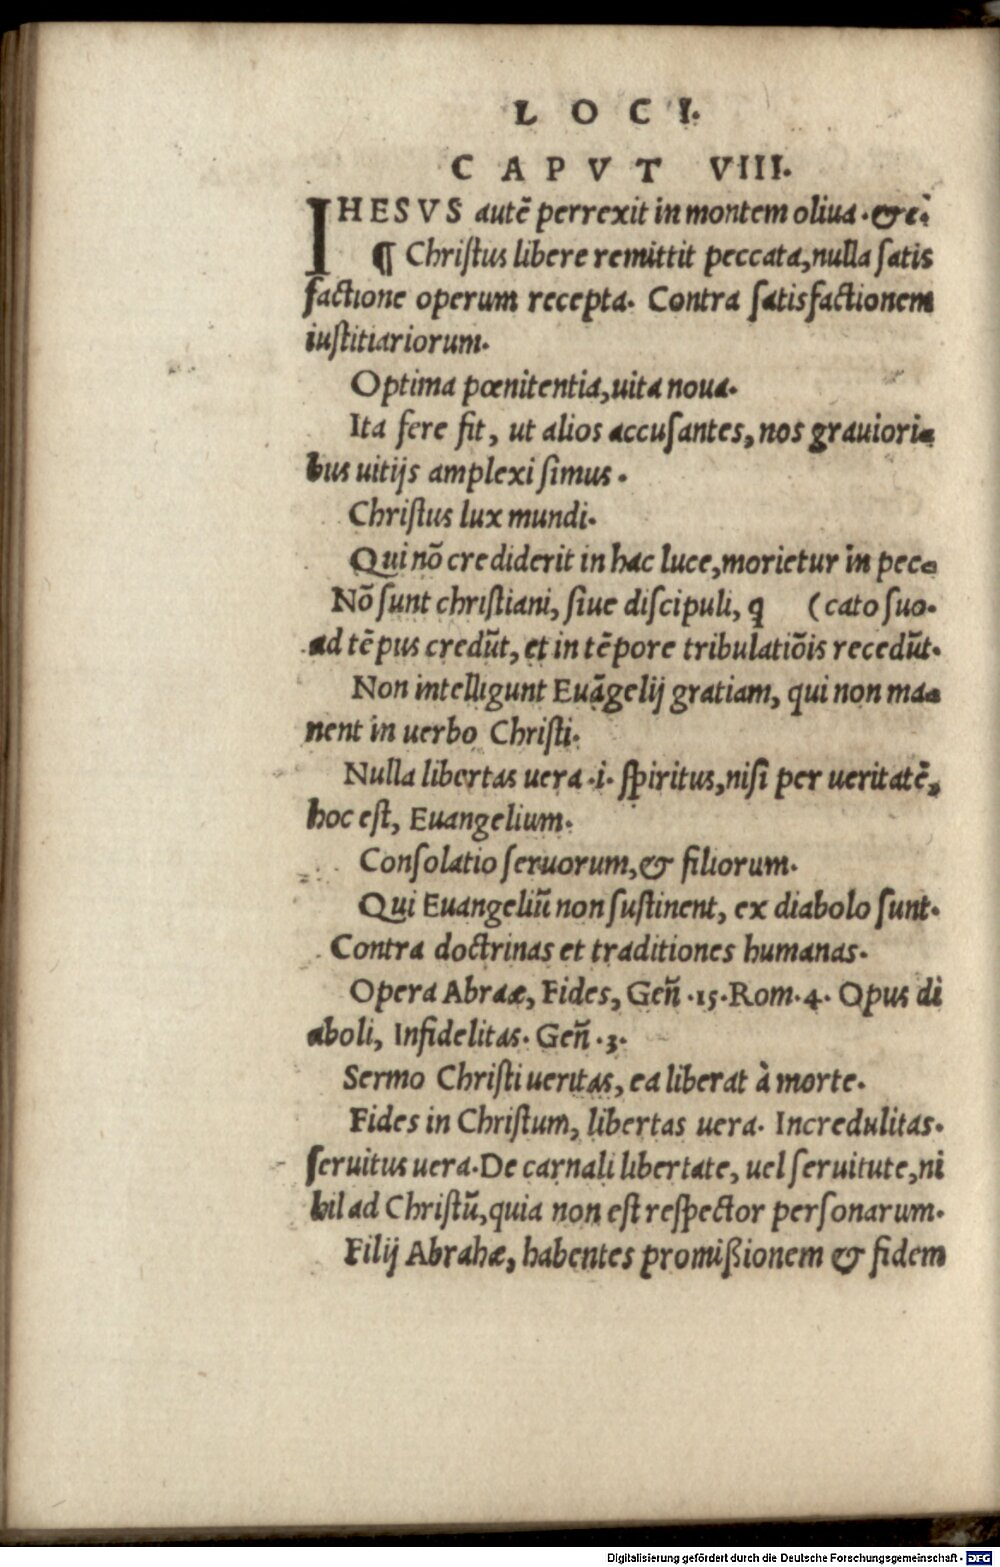 LOCI.
CAPVT VIII.
IHESVS autē perrexit in montem oliua .&c̀.
¶ Christus libere remittit peccata, nulla satis
factione operum recepta. Contra satisfactionem
iustitiariorum.
Optima pœnitentia, uita noua.
Ita fere fit, ut alios accusantes, nos grauiori-
bus uitijs amplexi simus.
Christus lux mundi.
Qui nō crediderit in hac luce, morietur in pec-
Nō sunt christiani, siue discipuli, q (cato suo.
ad tēpus credūt, et in tēpore tribulatiōis recedūt.
Non intelligunt Euāgelij gratiam, qui non ma-
nent in uerbo Christi.
Nulla libertas uera .i. spiritus, nisi per ueritatē,
hoc est, Euangelium.
Consolatio seruorum, & filiorum.
Qui Euangeliū non sustinent, ex diabolo sunt.
Contra doctrinas et traditiones humanas.
Opera Abraæ, Fides, Geñ .15. Rom. 4. Opus di
aboli, Infidelitas. Geñ .3.
Sermo Christi ueritas, ea liberat à morte.
Fides in Christum, libertas uera. Incredulitas.
seruitus uera. De carnali libertate, uel seruitute, ni
hil ad Christū, quia non est respector personarum.
Filij Abrahæ, habentes promißionem & fidem
Digitalisierung gefördert durch die Deutsche Forschungsgemeinschaft - DFG